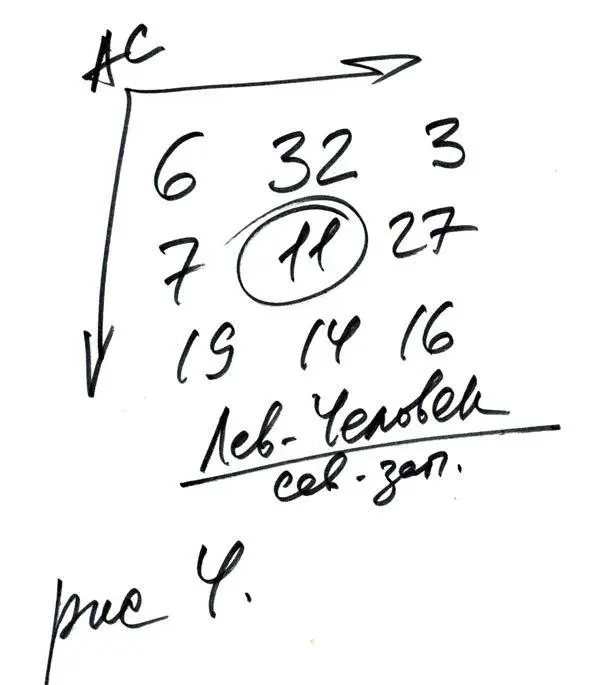 АС
6 32 3
7 11 27
19 14 16
Лев-Человек
сев-зап.
рис 4.